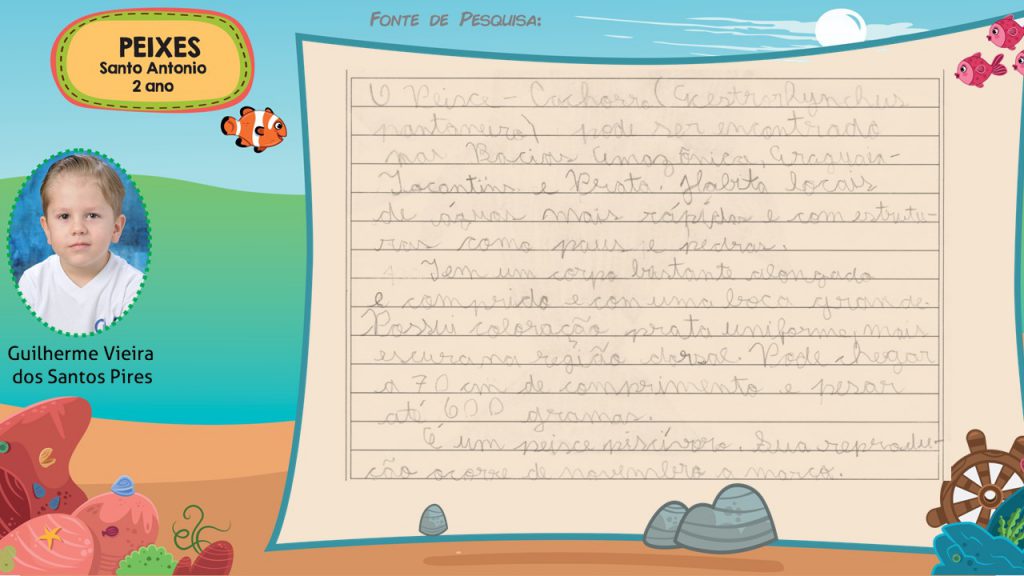 PEIXES
Santo Antonio
2 ano
Fonte de Pesquisa:
Guilherme Vieira
dos Santos Pires
O Peisce-Cachorro (Acestrorhynchus
pantaneiro) pode ser encontrado
nas Bacias Amazônica, Araguaia-
Tocantins e Prata. Habita locais
de águas mais rápidas e com estrutu-
ras como paus e pedras.
Tem um corpo bastante alongado
e comprido e com uma boca grande.
Possui coloração prata uniforme, mais
escura na região dorsal. Pode chegar
a 70 cm de comprimento e pesar
até 600 gramas.
É um peisce piscívoro. Sua reprodu-
ção ocorre de novembro a março.